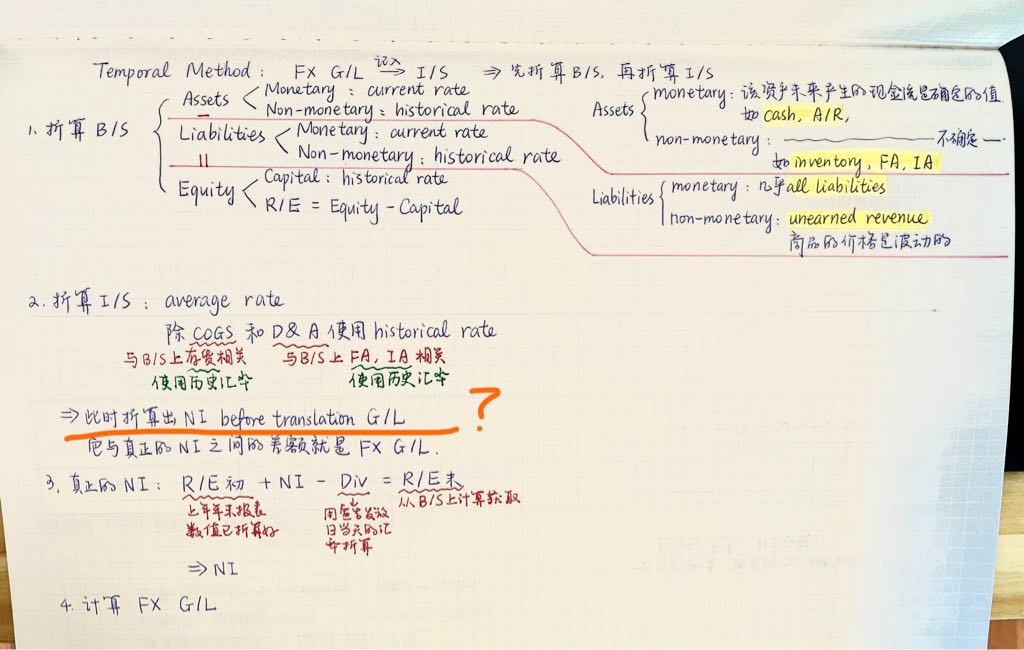 Temporal Method: FX G/L 记入→ I/S ⇒ 先折算B/S, 再折算I/S
1. 折算 B/S
Assets < Monetary: current rate
Non-monetary: historical rate
=
Liabilities < Monetary: current rate
Non-monetary: historical rate
||
Equity < Capital: historical rate
R/E = Equity - Capital
Assets { monetary: 该资产未来产生的现金流是确定的值.
如 cash, A/R,
non-monetary: ———— 不确定 —
如 inventory, FA, IA
Liabilities { monetary: 几乎all liabilities
non-monetary: unearned revenue
商品的价格是波动的
2. 折算 I/S: average rate
除 COGS 和 D&A 使用 historical rate
与B/S上存货相关 与B/S上 FA, IA 相关
使用历史汇率 使用历史汇率
⇒ 此时折算出NI before translation G/L ?
它与真正的NI之间的差额就是 FX G/L.
3. 真正的NI: R/E初 + NI - Div = R/E末
上年年末报表 用宣告发放 从B/S上计算获取
数值已折算好 日当天的汇
率折算
⇒ NI
4. 计算 FX G/L